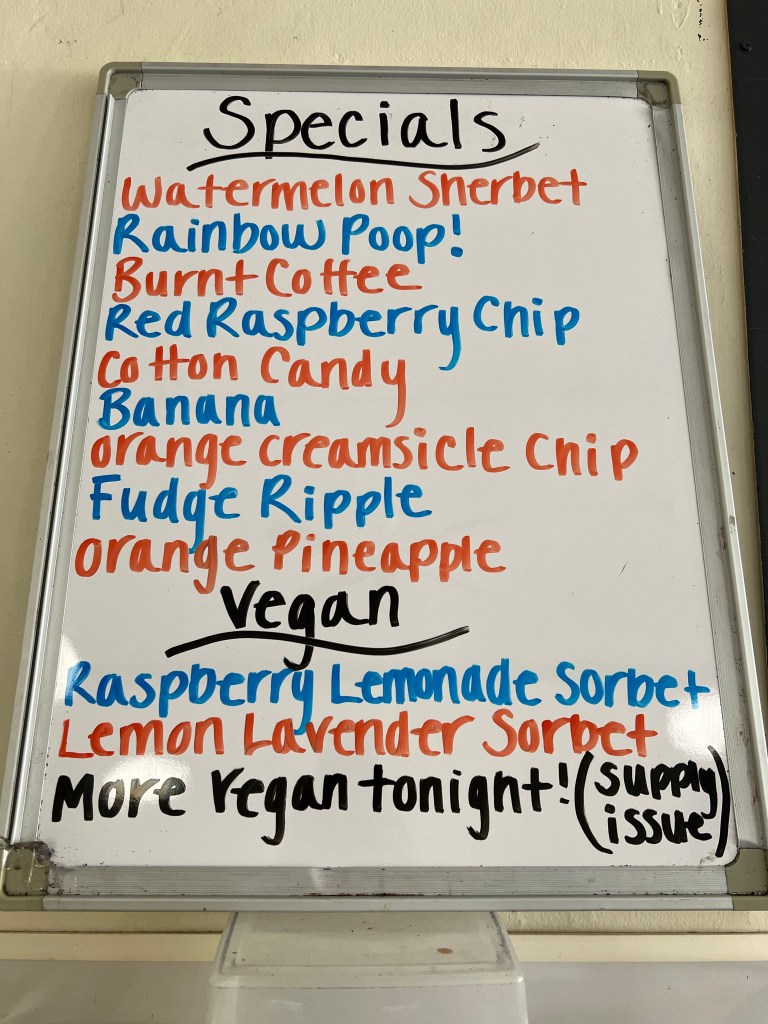 Specials
Watermelon Sherbet
Rainbow Poop!
Burnt Coffee
Red Raspberry Chip
Cotton Candy
Banana
orange creamsicle Chip
Fudge Ripple
orange Pineapple
Vegan
Raspberry Lemonade Sorbet
Lemon Lavender Sorbet
More Vegan tonight! (supply issue)